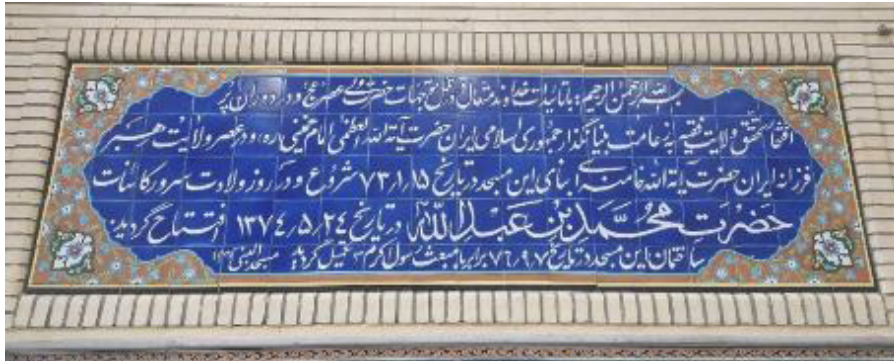 بسم الله الرحمن الرحیم با تائیدات خداوند متعال و ظل توجهات حضرت ولی عصر عج و در دوران پر
افتخار تحقق ولایت فقیه به زعامت بنیانگذار جمهوری اسلامی ایران حضرت آیة الله العظمی امام خمینی ره و در عصر ولایت رهبر
فرزانه ایران حضرت آیة الله خامنه ای بنای این مسجد در تاریخ ۷۳٫۱٫۱۵ شروع و در روز ولادت سرور کائنات
حضرت محمد بن عبدالله در تاریخ ۱۳۷۴٫۵٫۲۴ افتتاح گردید
ساختمان این مسجد در تاریخ ۷۶٫۹٫۷ برابر با مبعث رسول اکرم تکمیل گردید